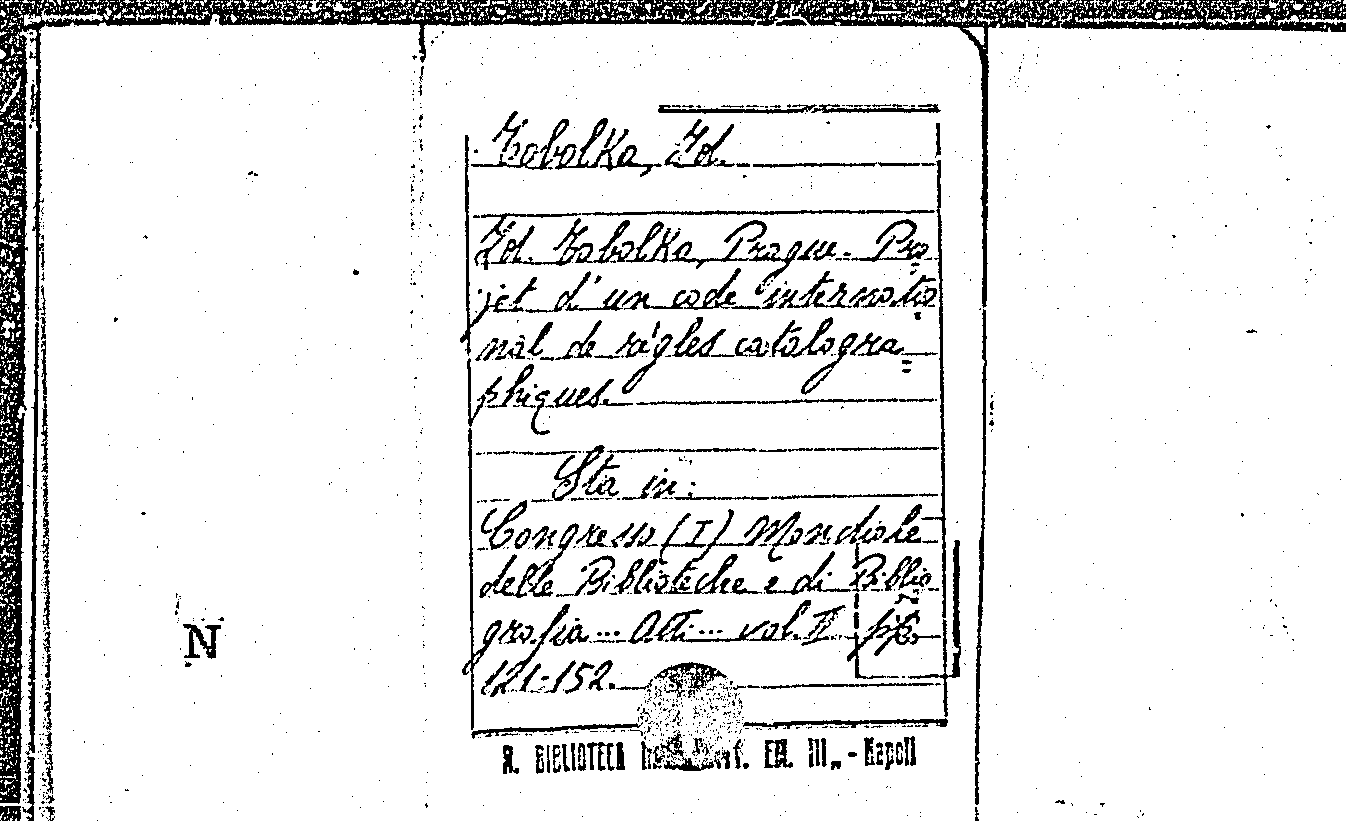 Tobolka, Zd.
Zd. Tobolka, Prague. Pro=
jet d'un code internatio
nal de règles catalogra=
phiques.
Sta in:
Congresso (I) Mondiale
delle Biblioteche e di Biblio
grafia ... Atti ... vol. II pp.
121-152.
N
R. BIBLIOTECA EM. III„ - Napoli